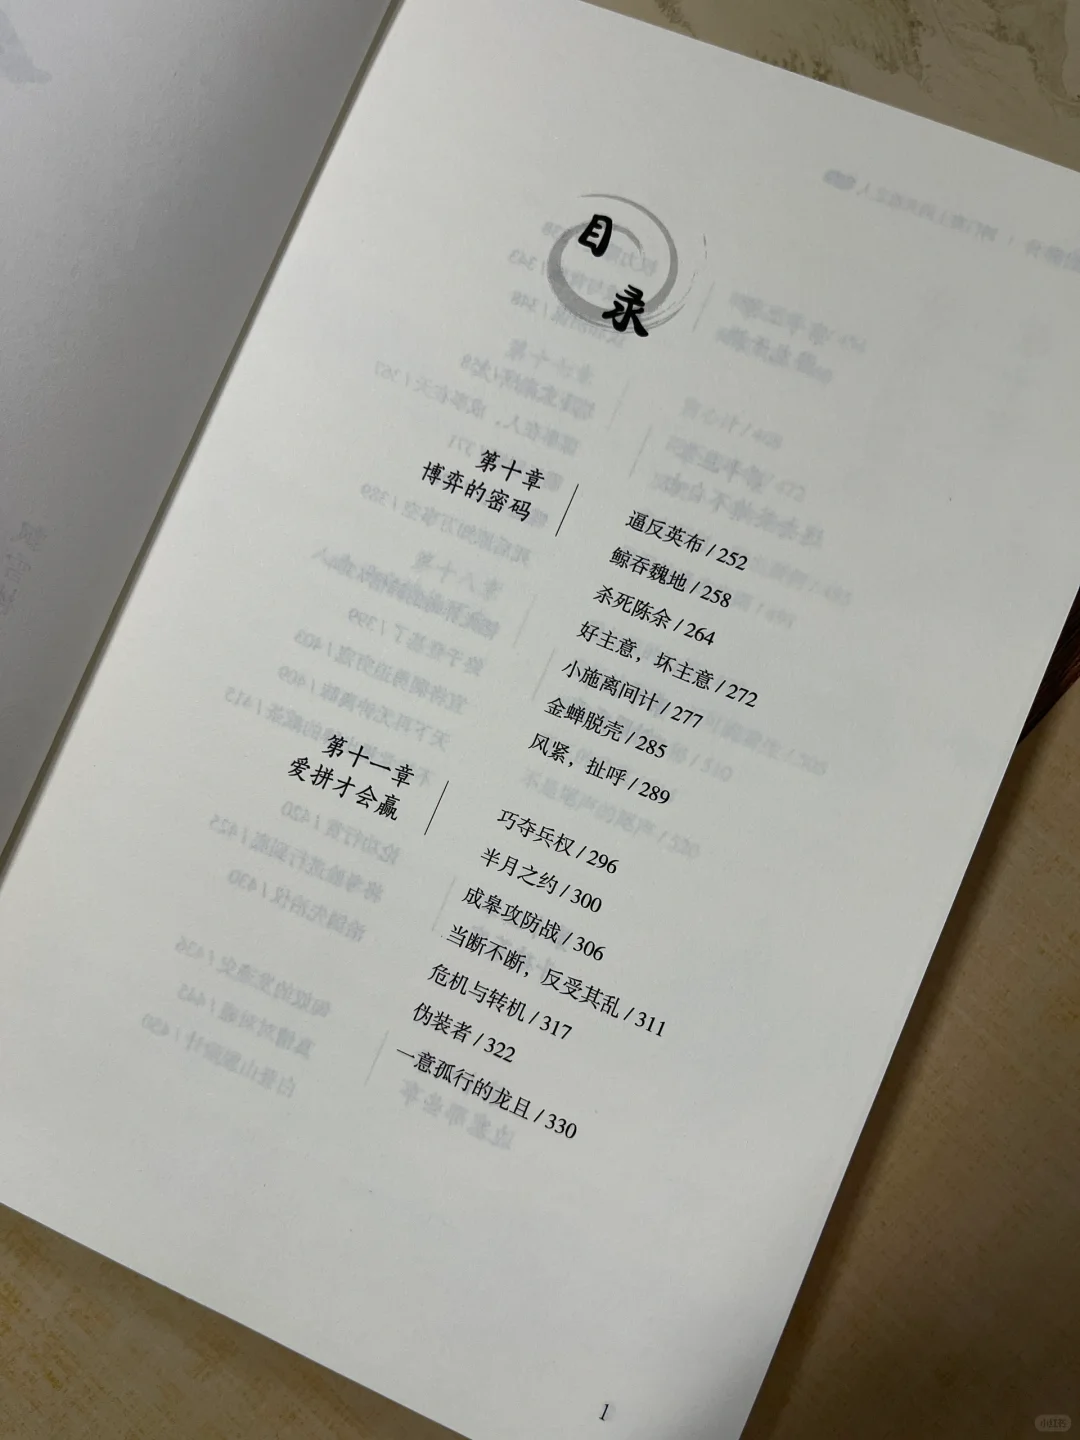 目
录
第十章
博弈的密码
逼反英布 / 252
鲸吞魏地 / 258
杀死陈余 / 264
好主意，坏主意 / 272
小施离间计 / 277
金蝉脱壳 / 285
风紧，扯呼 / 289
第十一章
爱拼才会赢
巧夺兵权 / 296
半月之约 / 300
成皋攻防战 / 306
当断不断，反受其乱 / 311
危机与转机 / 317
伪装者 / 322
一意孤行的龙且 / 330
1